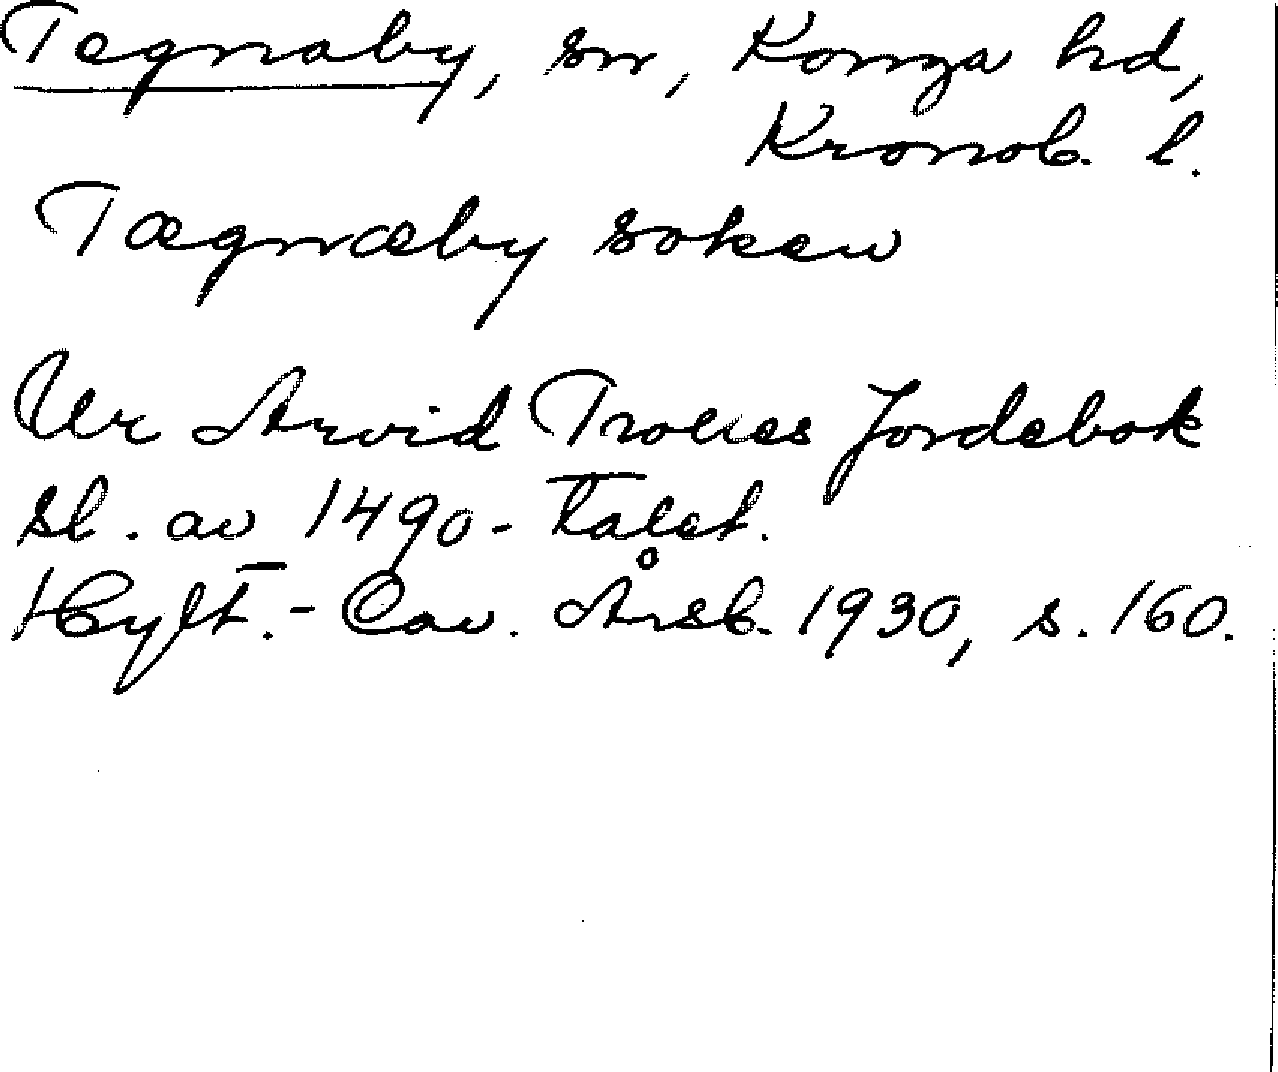 Tegnaby, sn, Konga hd,
Kronob. l.
Tægnæby soken
Ur Arvid Trolles Jordebok
sl. av 1490-talet.
Hylt.-Cav. Årsb. 1930, s. 160.